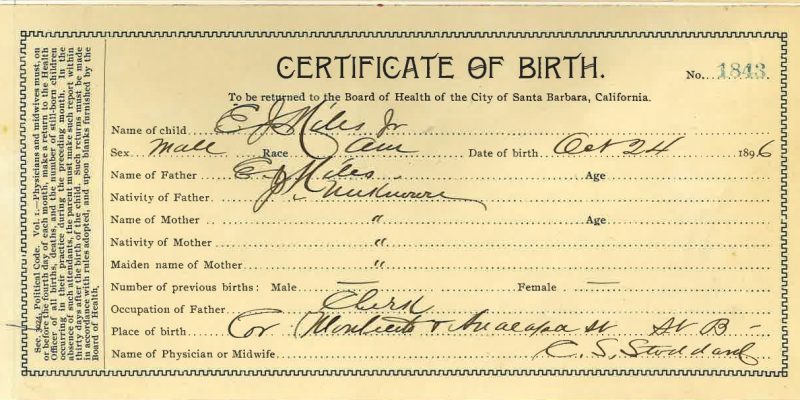 CERTIFICATE OF BIRTH.
No. 1843
To be returned to the Board of Health of the City of Santa Barbara, California.
Name of child E J Niles Jr
Sex Male Race Am Date of birth Oct 24 1896
Name of Father E. J Niles Age
Nativity of Father Unknown
Name of Mother " Age
Nativity of Mother "
Maiden name of Mother "
Number of previous births: Male — Female —
Occupation of Father Clerk
Place of birth Cor Montecito & Anacapa St St B -
Name of Physician or Midwife C. S. Stoddard
Sec. 3044, Political Code. Vol. 1.—Physicians and midwives must, on
or before the fourth day of each month, make a return to the Health
Officer of all births, deaths, and the number of still-born children
occurring in their practice during the preceding month. In the
absence of such attendants, the parent must make such report within
thirty days after the birth of the child. Such returns must be made
in accordance with rules adopted, and upon blanks furnished by the
Board of Health.